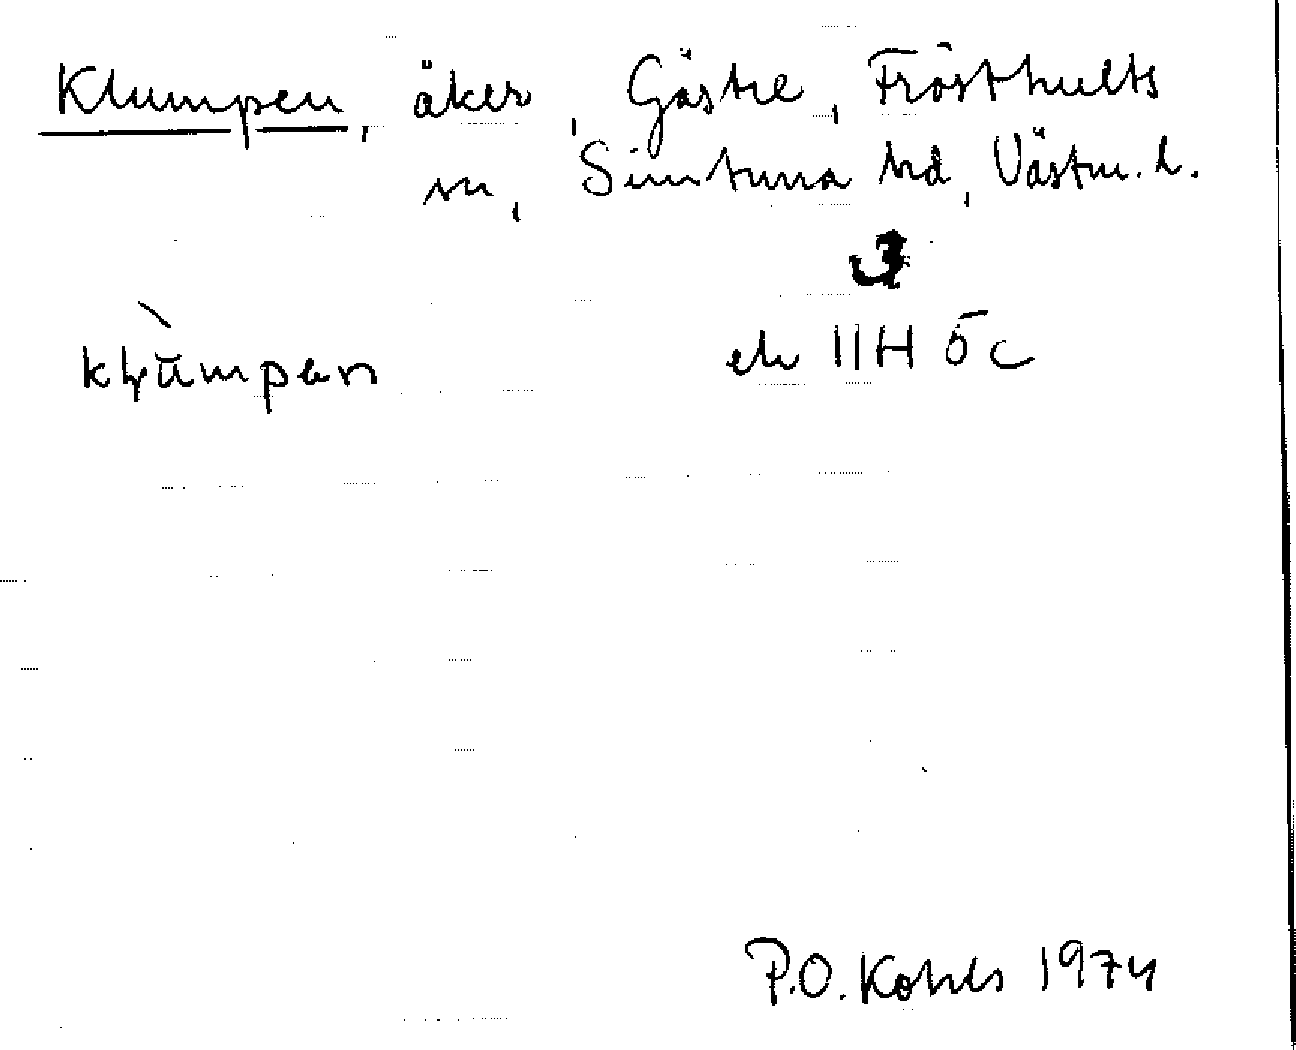 Klumpen, åker, Gästre, Frösthults
sn, Simtuna hd, Västm. l.
3
klumpen ek 11H 5c
P.O. Kohls 1974